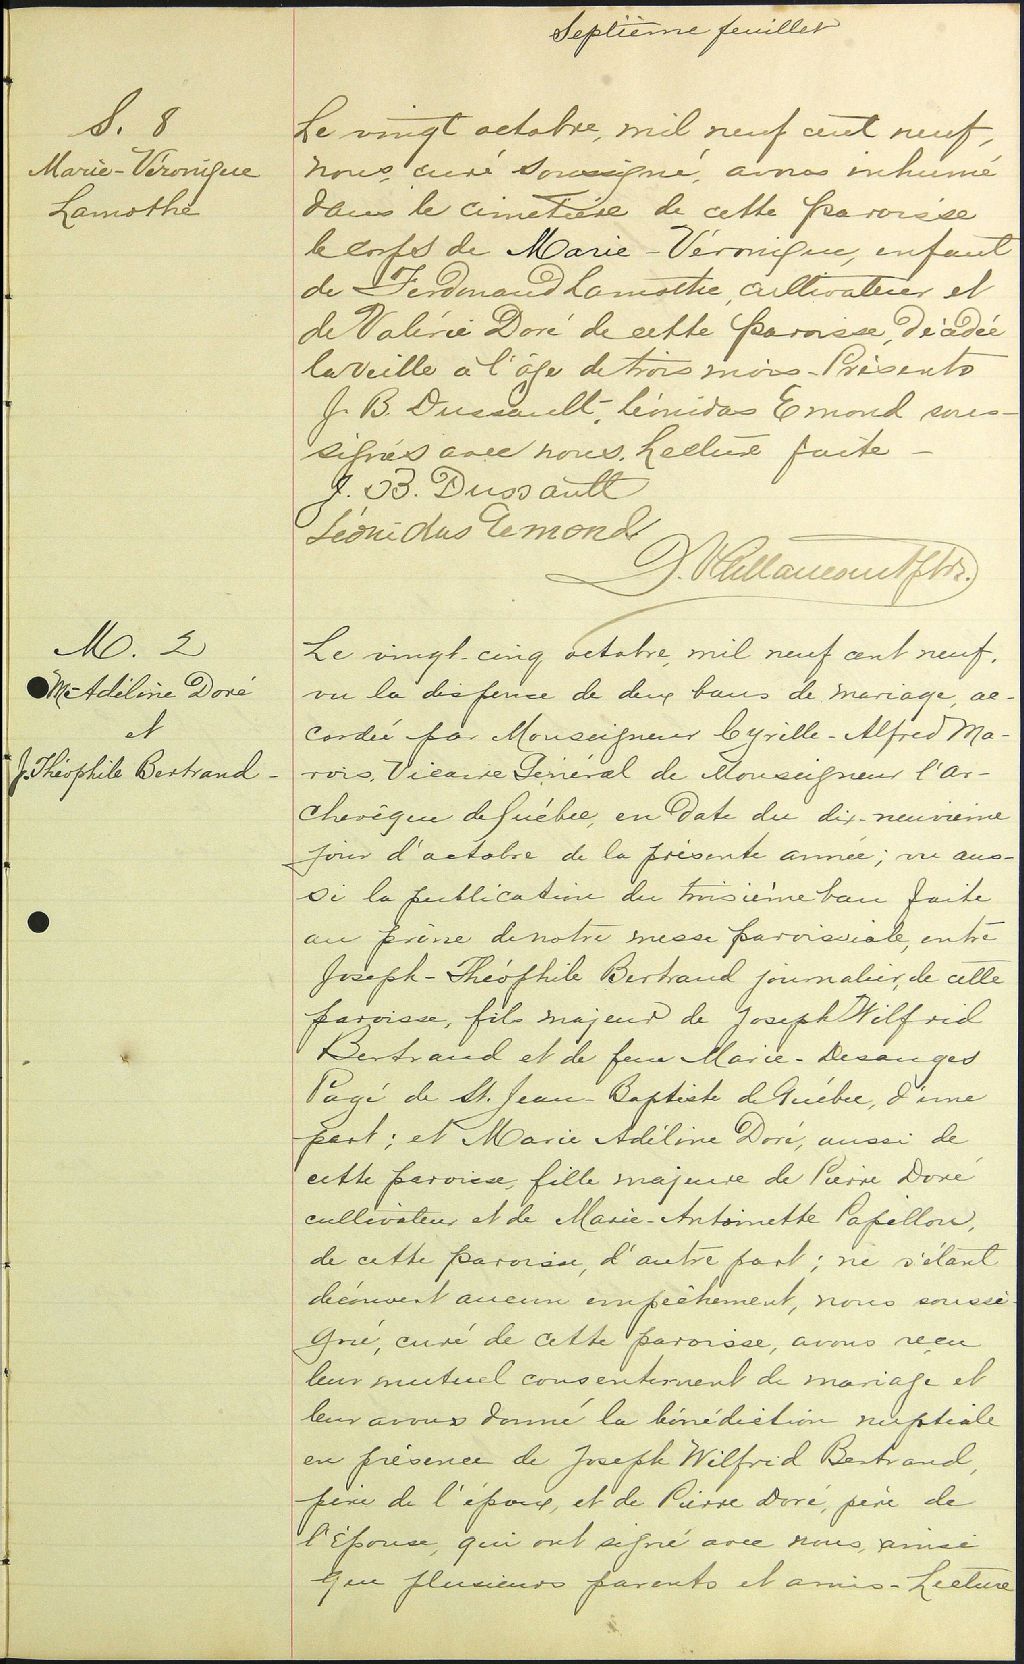 Septième feuillet
S. 8
Marie-Véronique
Lamothe
Le vingt octobre, mil neuf cent neuf,
nous, curé soussigné, avons inhumé
dans le cimetière de cette paroisse
le corps de Marie-Véronique, enfant
de Ferdinand Lamothe, cultivateur et
de Valérie Doré de cette paroisse, décédée
la veille à l'âge de trois mois - Présents
J. B. Dussault, Léonidas Emond sous-
signés avec nous. Lecture faite -
J. B. Dussault
Léonidas Emond
D. Vaillancourt ptre.
M. 2
M-Adéline Doré
et
J. Théophile Bertrand -
Le vingt-cinq octobre, mil neuf cent neuf,
vu la dispense de deux bans de mariage, ac-
cordée par Monseigneur Cyrille-Alfred Ma-
rois, Vicaire Général de Monseigneur l'Ar-
chevêque de Québec, en date du dix-neuvième
jour d'octobre de la présente année; vu aus-
si la publication du troisième ban faite
au prône de notre messe paroissiale, entre
Joseph-Théophile Bertrand journalier, de cette
paroisse, fils majeur de Joseph Wilfrid
Bertrand et de feue Marie-Desanges
Pagé de St. Jean-Baptiste de Québec, d'une
part; et Marie Adéline Doré, aussi de
cette paroisse, fille majeure de Pierre Doré
cultivateur et de Marie-Antoinette Papillon,
de cette paroisse, d'autre part; ne s'étant
découvert aucun empêchement, nous soussi-
gné, curé de cette paroisse, avons reçu
leur mutuel consentement de mariage et
leur avons donné la bénédiction nuptiale
en présence de Joseph Wilfrid Bertrand,
père de l'époux, et de Pierre Doré, père de
l'épouse, qui ont signé avec nous, ainsi
que plusieurs parents et amis - Lecture